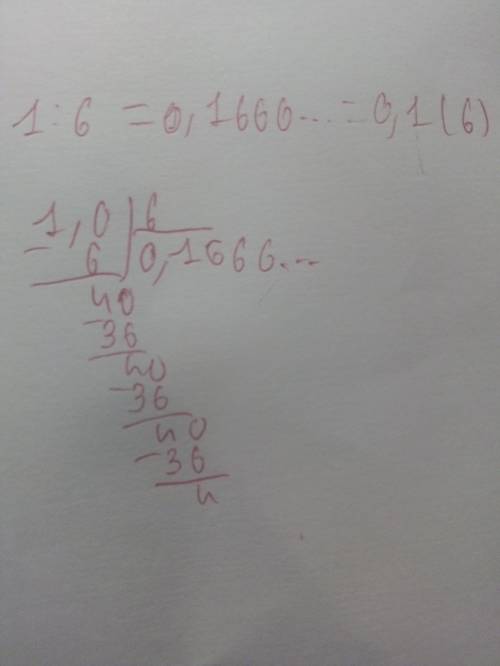 1 : 6 = 0,1666... = 0,1(6)
1,0 | 6
- 6 | 0,1666...
40
- 36
40
- 36
40
- 36
4